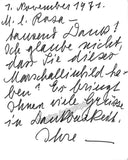 1. November 1971.
M. l. Rosa -
tausend Dank!
Ich glaube nicht,
dass Sie dieses
Marschallinbild ha-
ben? Er bringt
Ihnen viele Grüsse
in Dankbarkeit.
Ihre -